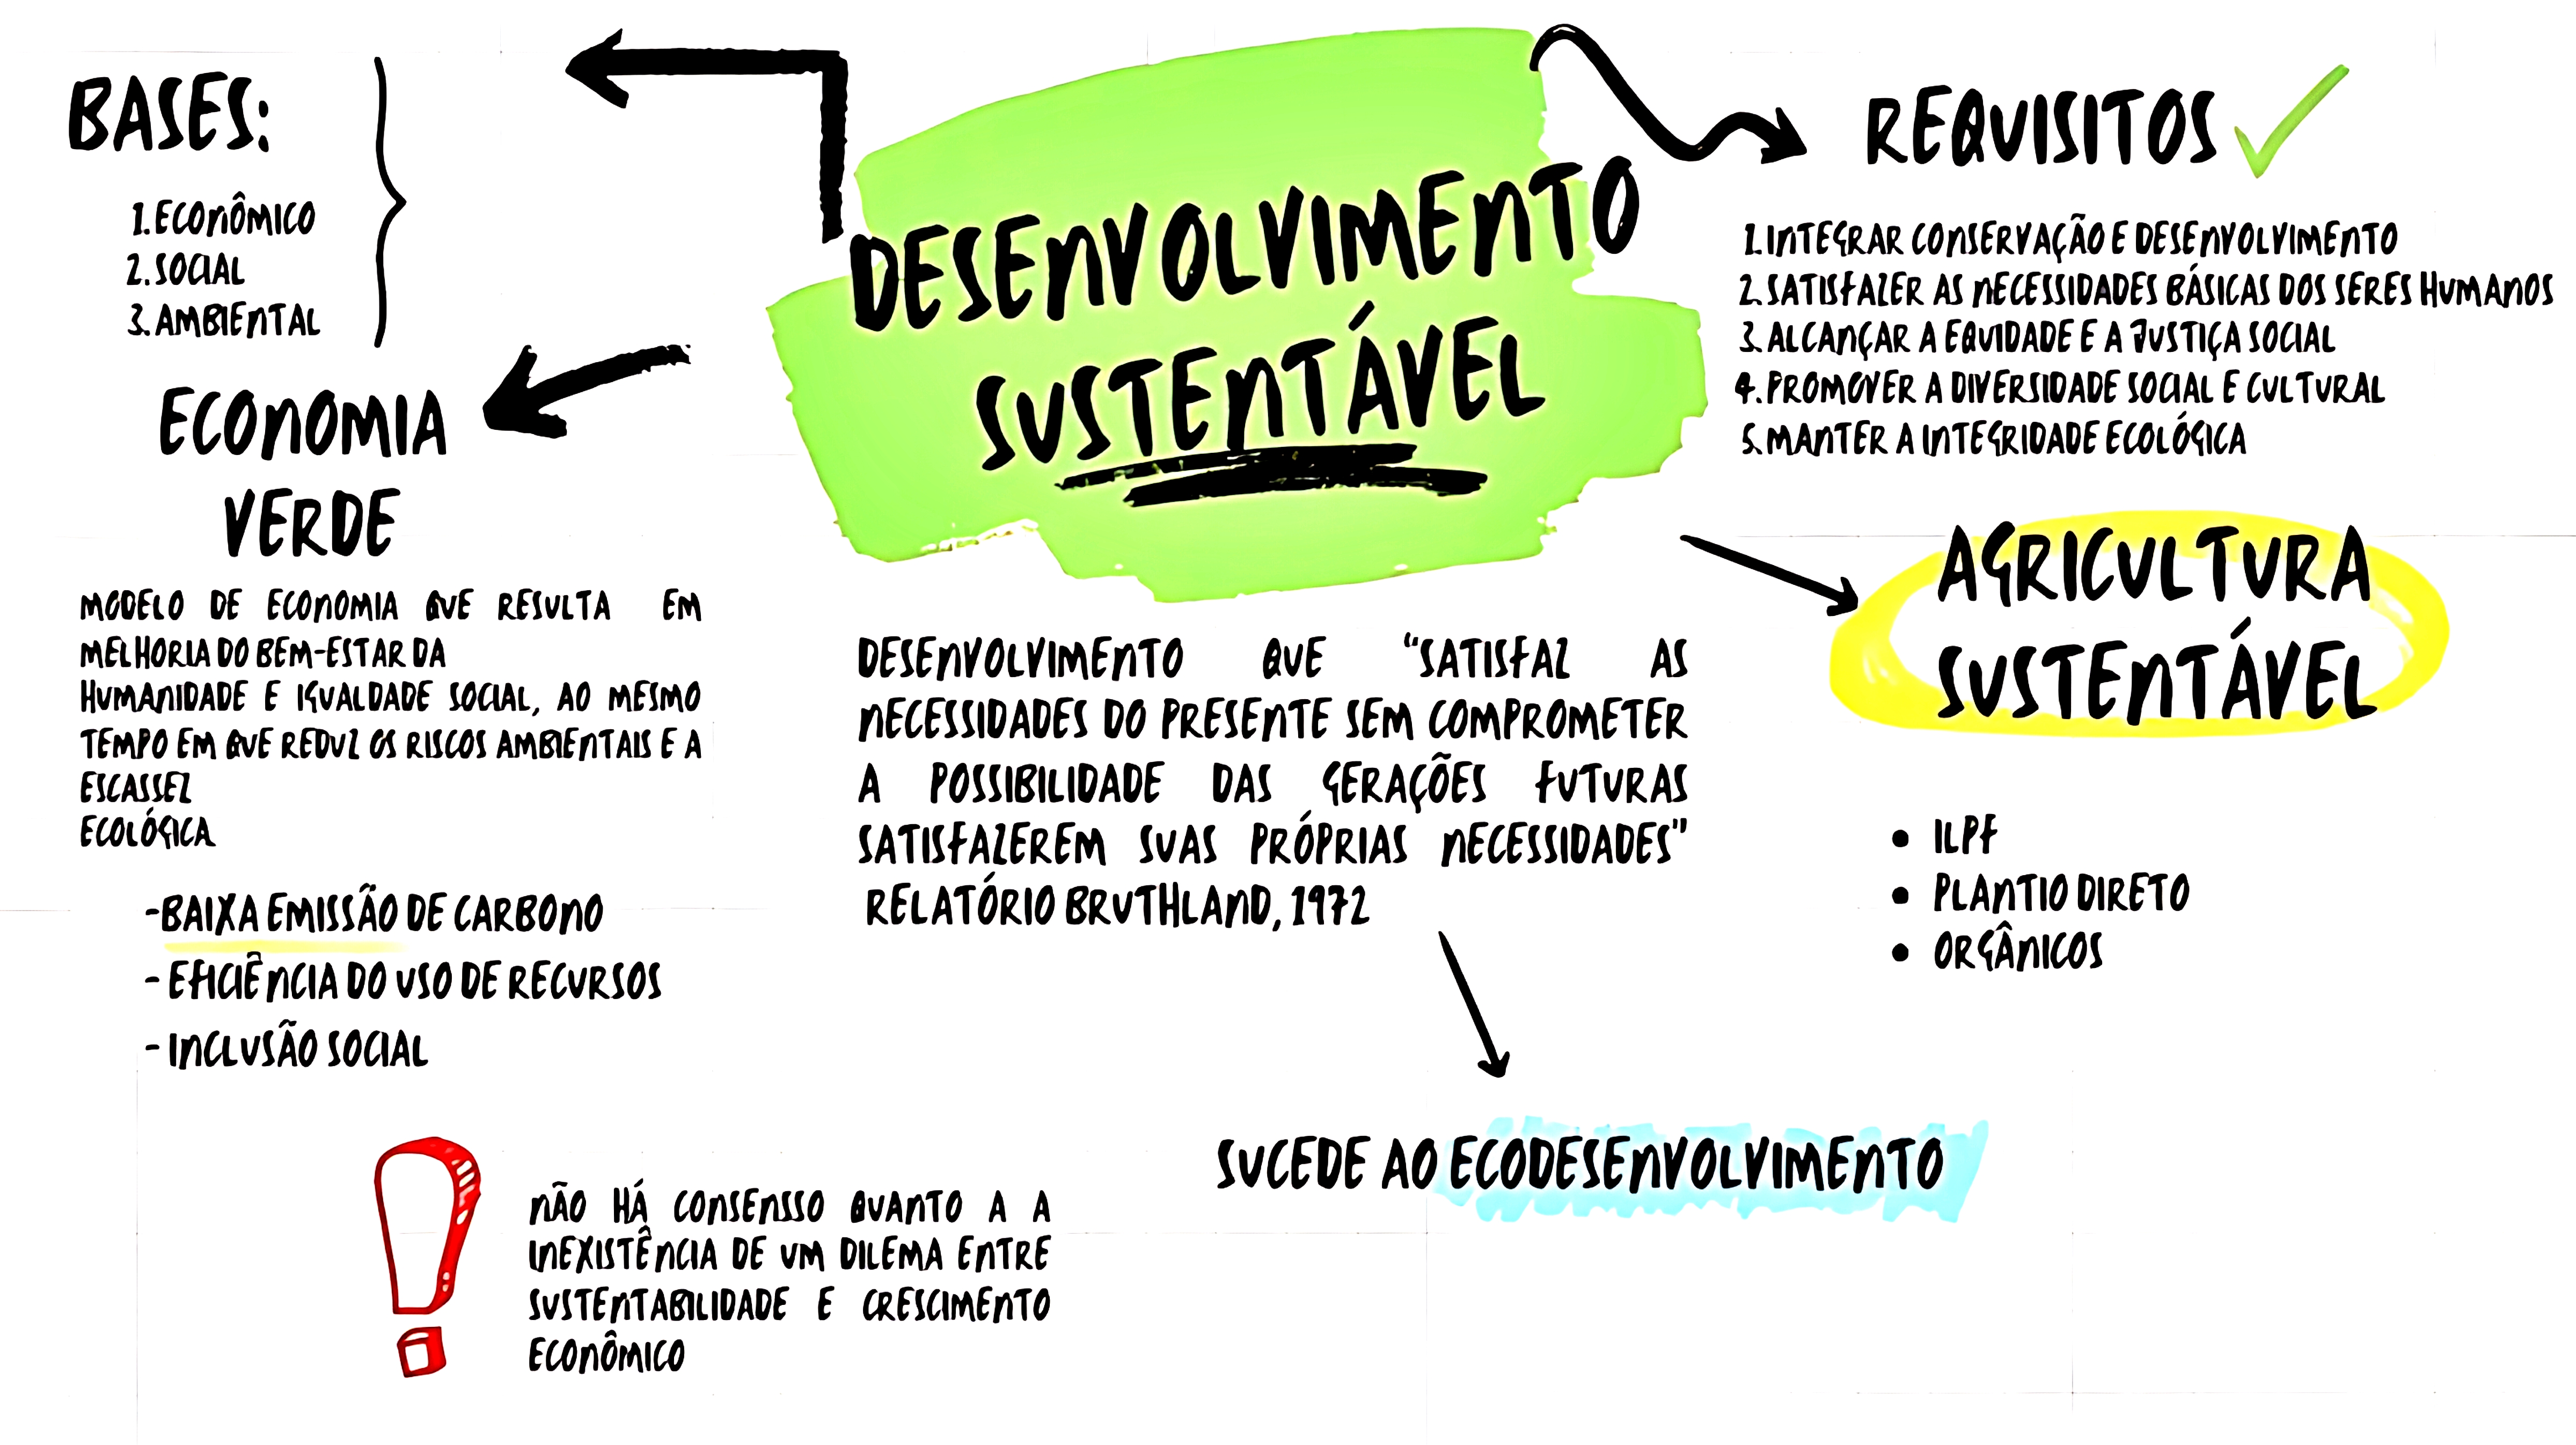 BASES:
1. ECONÔMICO
2. SOCIAL
3. AMBIENTAL
ECONOMIA
VERDE
MODELO DE ECONOMIA QUE RESULTA EM
MELHORIA DO BEM-ESTAR DA
HUMANIDADE E IGUALDADE SOCIAL, AO MESMO
TEMPO EM QUE REDUZ OS RISCOS AMBIENTAIS E A
ESCASSEZ
ECOLÓGICA
-BAIXA EMISSÃO DE CARBONO
- EFICIÊNCIA DO USO DE RECURSOS
- INCLUSÃO SOCIAL
DESENVOLVIMENTO
SUSTENTÁVEL
DESENVOLVIMENTO QUE "SATISFAZ AS
NECESSIDADES DO PRESENTE SEM COMPROMETER
A POSSIBILIDADE DAS GERAÇÕES FUTURAS
SATISFAZEREM SUAS PRÓPRIAS NECESSIDADES"
RELATÓRIO BRUTHLAND, 1972
SUCEDE AO ECODESENVOLVIMENTO
NÃO HÁ CONSENSSO QUANTO A A
INEXISTÊNCIA DE UM DILEMA ENTRE
SUSTENTABILIDADE E CRESCIMENTO
ECONÔMICO
REQUISITOS
1. INTEGRAR CONSERVAÇÃO E DESENVOLVIMENTO
2. SATISFAZER AS NECESSIDADES BÁSICAS DOS SERES HUMANOS
3. ALCANÇAR A EQUIDADE E A JUSTIÇA SOCIAL
4. PROMOVER A DIVERSIDADE SOCIAL E CULTURAL
5. MANTER A INTEGRIDADE ECOLÓGICA
AGRICULTURA
SUSTENTÁVEL
• ILPF
• PLANTIO DIRETO
• ORGÂNICOS